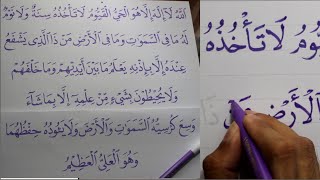 اللَّهُ لَا إِلَٰهَ إِلَّا هُوَ الْحَيُّ الْقَيُّومُ لَا تَأْخُذُهُ سِنَةٌ وَلَا نَوْمٌ
لَهُ مَا فِي السَّمَوَاتِ وَمَا فِي الْأَرْضِ مَنْ ذَا الَّذِي يَشْفَعُ
عِنْدَهُ إِلَّا بِإِذْنِهِ يَعْلَمُ مَا بَيْنَ أَيْدِيهِمْ وَمَا خَلْفَهُمْ
وَلَا يُحِيطُونَ بِشَيْءٍ مِنْ عِلْمِهِ إِلَّا بِمَا شَاءَ
وَسِعَ كُرْسِيُّهُ السَّمَوَاتِ وَالْأَرْضَ وَلَا يَئُودُهُ حِفْظُهُمَا
وَهُوَ الْعَلِيُّ الْعَظِيمُ
يُّومُ لَا تَأْخُذُهُ
الْأَرْضِ مَن ذَا